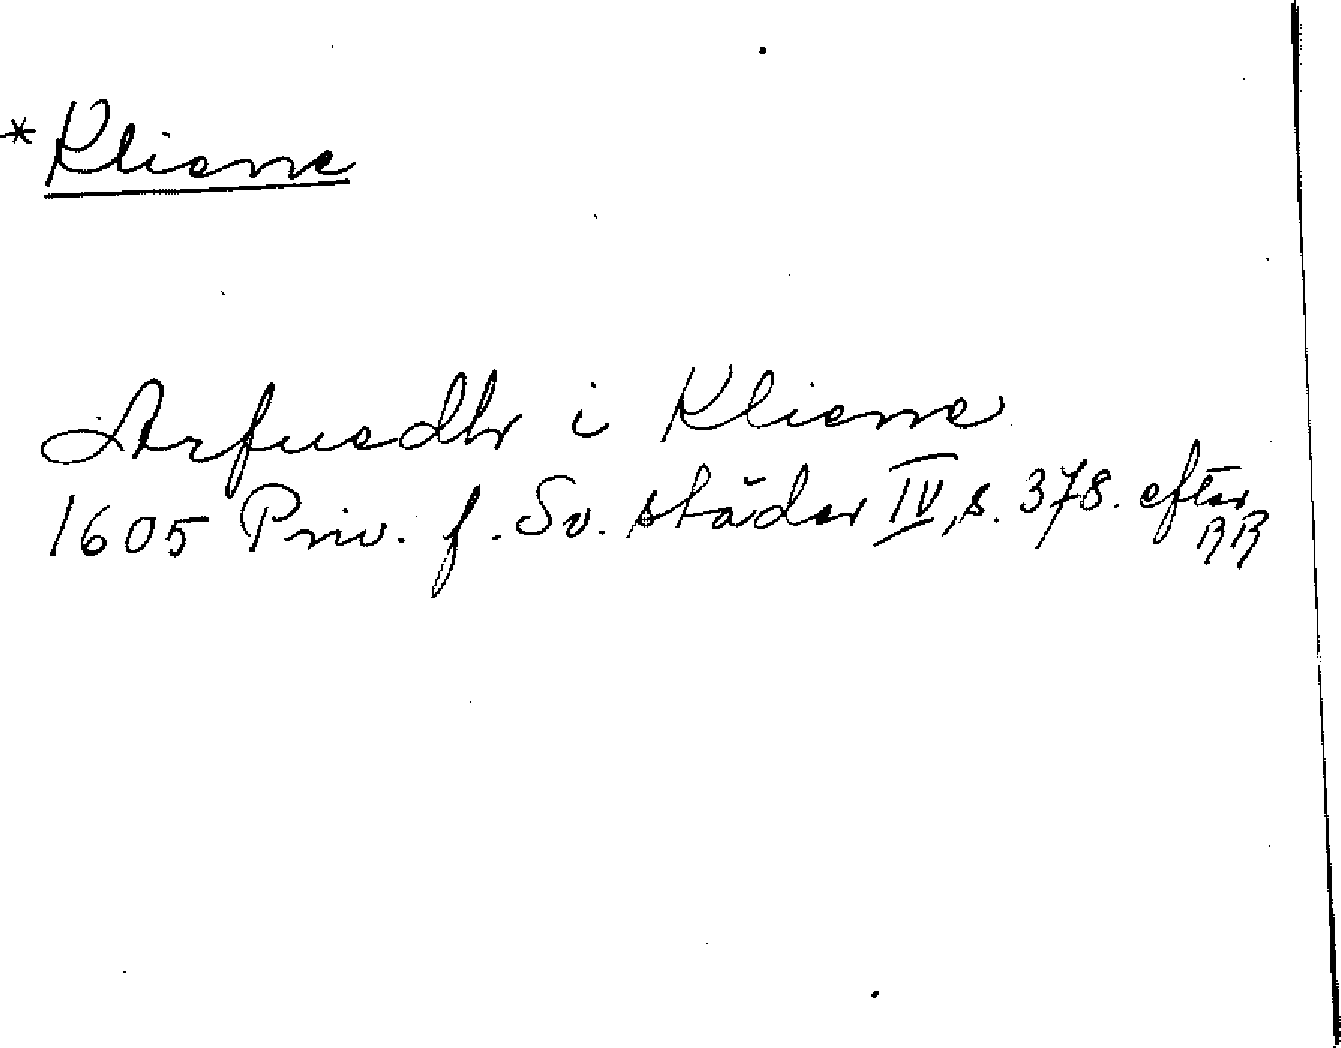 *Kliene
Arfuedh i Kliene
1605 Priv. f. Sv. städer IV, s. 378. efter
RR